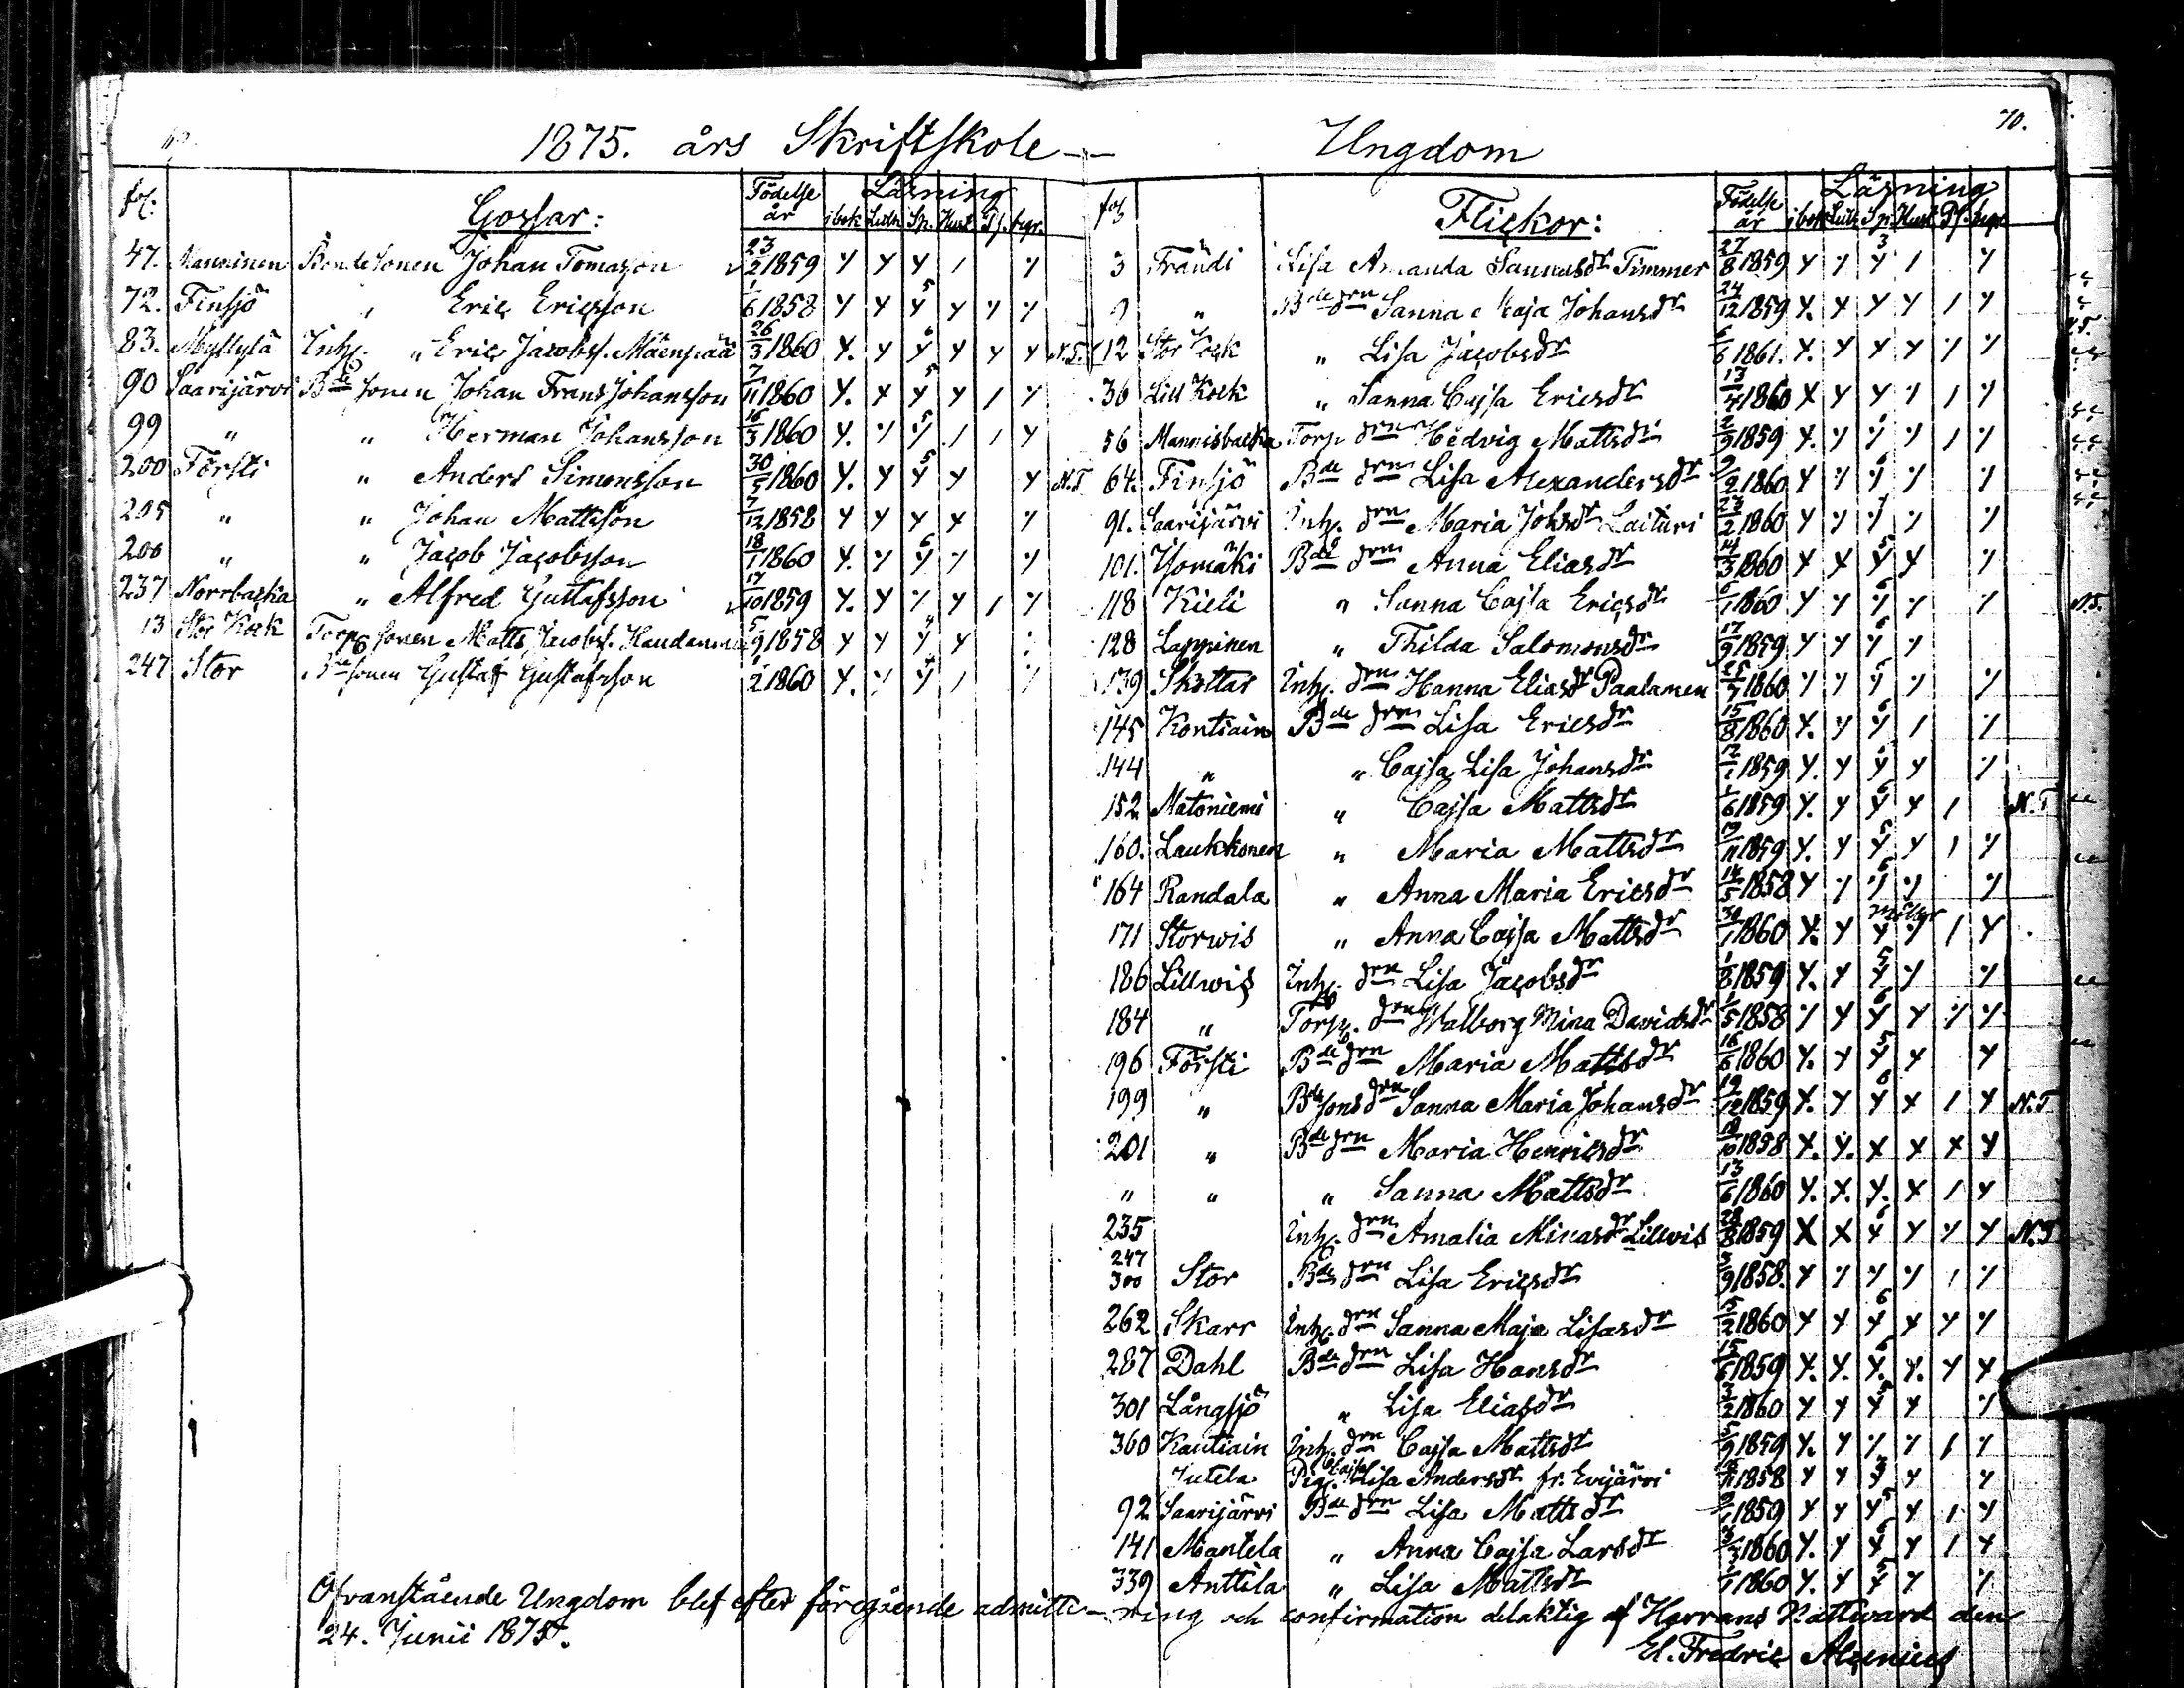 1875. års Skriftskole- Ungdom
70.
fol. Gossar: Födelse år Läsning i bok Luth. Sp. Hust. Ps. begr.
47. Manninen Bondesonen Johan Tomasson 23/2 1859
72. Finsjö " Eric Ericsson 1/6 1858
83. Myllylä Inh. " Eric Jacobs. Mäenpää 26/3 1860 N.T.
90 Saarijärvi Bde sonen Johan Frans Johansson 7/11 1860
99 " " Herman Johansson 16/3 1860
200 Försti " Anders Simonsson 30/5 1860 N.T
205 " " Johan Mattsson 7/12 1858
200 " " Jacob Jacobsson 18/1 1860
237 Norrbacka " Alfred Gustafsson 17/10 1859
13 Stor Kock Torp sonen Matts Jacobs. 5/9 1858
247 Stor Bde sonen Gustaf Gustafsson 1/2 1860
fol Flickor: Födelse år Läsning i bok Luth. Sp. Hust. Ps. begr.
3 Frändi Lisa Amanda Sannasdr Timmer 27/8 1859
" Bde drn Sanna Caja Johansdr 24/12 1859
12 Stor Kock " Lisa Jacobsdr 6/6 1861.
36 Lill Kock " Sanna Cajsa Ericsdr 13/4 1860
56 Mannisbacka Torp drn Hedvig Mattsdr 2/9 1859
64. Finsjö Bde drn Lisa Alexandersdr 9/2 1860
91. Saarijärvi Inh. drn Maria Johsdr Laituri 23/2 1860
101. Yomäki Bde drn Anna Eliasdr 14/3 1860
118 Kieli " Sanna Cajsa Ericsdr 6/1 1860
128 Lappinen " Thilda Salomonsdr 17/9 1859
139 Skyttas Inh. drn Hanna Eliasdr Paalanen 25/7 1860
145 Kontiain Bde drn Lisa Ericsdr 15/8 1860
144 " " Cajsa Lisa Johansdr 12/1 1859
152 Matoniemi " Cajsa Mattsdr 1/6 1859 N.T
160. Laukkonen " Maria Mattsdr 19/11 1859
164 Randala " Anna Maria Ericsdr 14/5 1858
171 Storwis " Anna Cajsa Mattsdr 30/1 1860
186 Lillwis Inh. drn Lisa Jacobsdr 1/8 1859
184 " Torp. drn Walborg Mina Davidsdr 1/5 1858
196 Försti Bde drn Maria Mattsdr 16/6 1860
199 " Bde sons drn Sanna Maria Johansdr 19/12 1859 N.T
201 " Bde drn Maria Henricsdr 18/10 1858
" " " Sanna Mattsdr 13/6 1860
235 Inh. drn Amalia Minasdr Lillwis 28/8 1859 N.T
247 300 Stor Bde drn Lisa Ericsdr 3/9 1858.
262 Skarr Inh. drn Sanna Maja Lisasdr 15/2 1860
287 Dahl Bde drn Lisa Hansdr 15/6 1859
301 Långsjö " Lisa Eliasdr 3/2 1860
360 Kautiain Inh. drn Cajsa Mattsdr 5/9 1859
Jutela Pig. Cajsa Lisa Andersdr fr. Evijärvi 1858
92 Saarijärvi Bde drn Lisa Mattsdr 9/1 1859
141 Mantela " Anna Cajsa Larsdr 1860
339 Anttila " Lisa Mattsdr 1860
Ofvanstående Ungdom blef efter föregående admitte- ring och confirmation delaktig af Herrans Nattward den
24. Junii 1875.
El. Fredric Alcenius